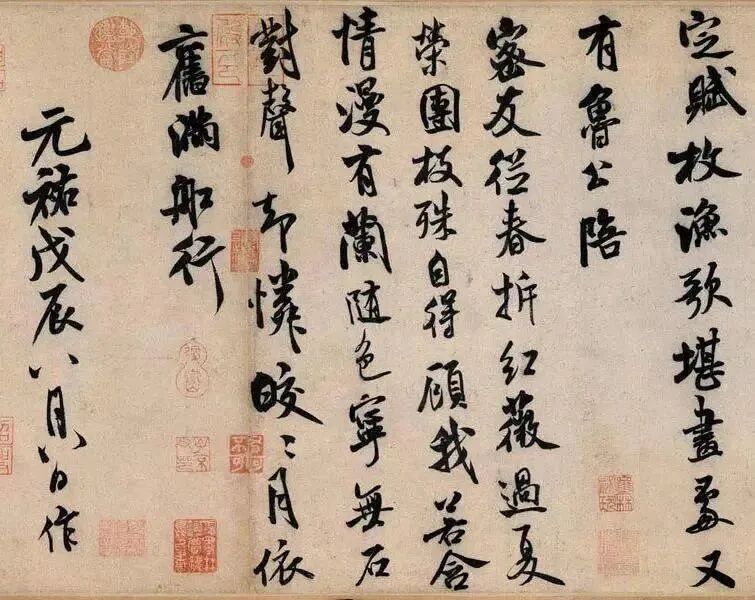 定賦枚漁歌堪畫處又
有魯公陪
密友従春拆紅薇過夏
榮團枝殊自得顧我若含
情漫有蘭随色寧無石
對聲却憐皎〻月依
舊滿船行
元祐戊辰八月八日作